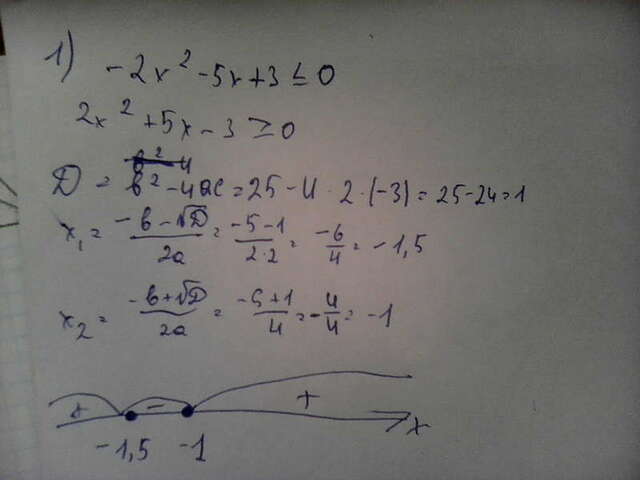 1) -2x² -5x+3 ≤ 0
2x² +5x-3 ≥ 0
D = b²-4ac = 25-4·2·(-3) = 25-24=1
x₁ = (-b-√D)/2a = (-5-1)/2·2 = -6/4 = -1,5
x₂ = (-b+√D)/2a = (-5+1)/4 = -4/4 = -1
+ - + x
-1,5 -1